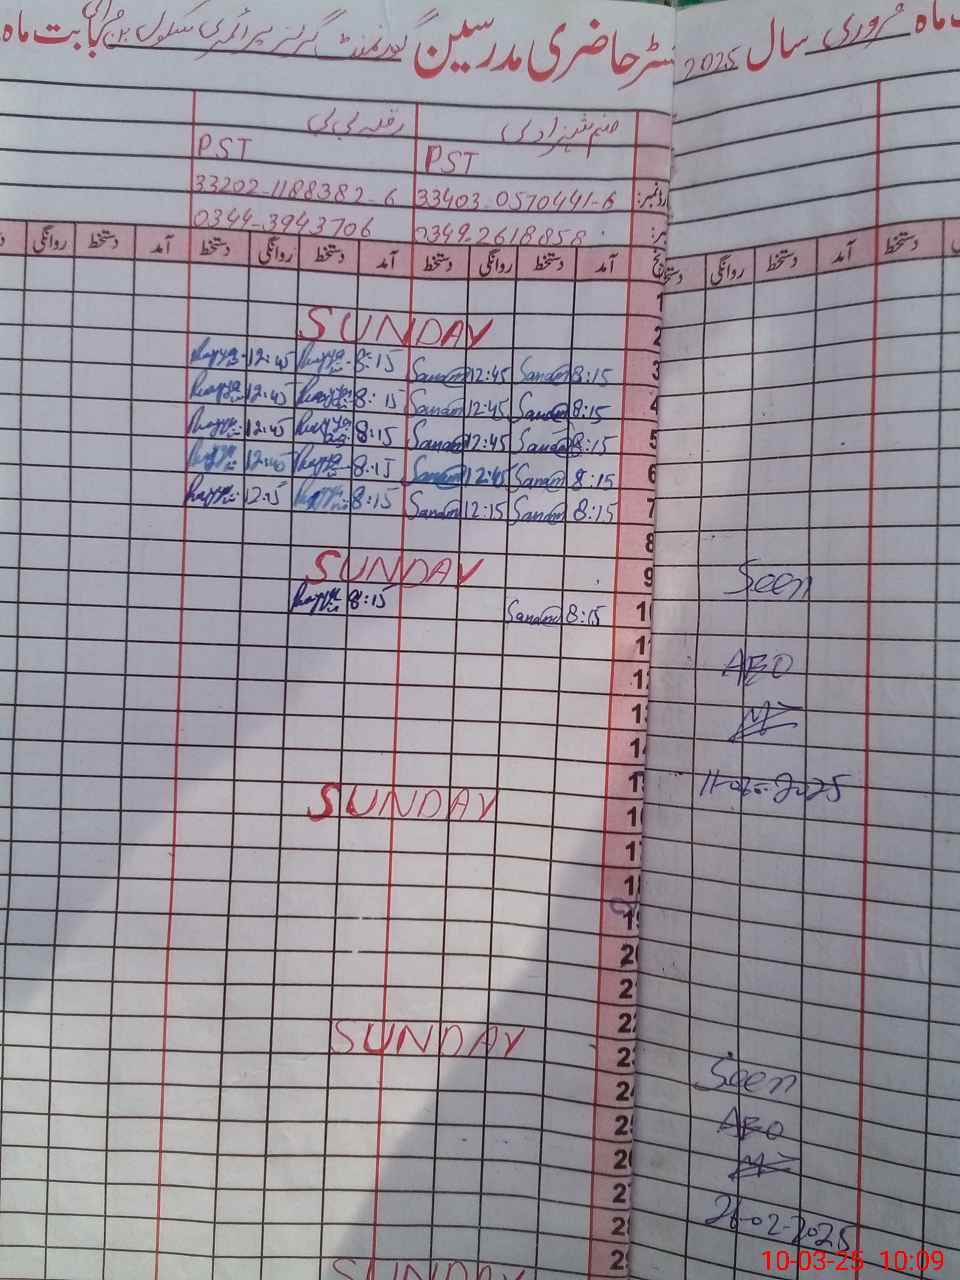 ماہ فروری سال 2025
حاضری مدرسین گورنمنٹ گرلز پرائمری سکول بابت ماہ
رقیہ بی بی صنم شہزادی
PST PST
33202-1188382-6 33403-0570441-6
0344-3943706 0349-2618858
روانگی دستخط آمد دستخط روانگی دستخط آمد دستخط روانگی دستخط آمد
دستخط روانگی دستخط آمد دستخط
1
SUNDAY 2
12:45 8:15 Sanam 12:45 Sanam 8:15 3
12:45 8:15 Sanam 12:45 Sanam 8:15 4
12:45 8:15 Sanam 12:45 Sanam 8:15 5
12:45 8:15 Sanam 12:45 Sanam 8:15 6
12:15 8:15 Sanam 12:15 Sanam 8:15 7
8
SUNDAY 9
8:15 Sanam 8:15 10
11
12
13
14
15
SUNDAY 16
17
18
19
20
21
22
SUNDAY 23
24
25
26
27
28
29
SUNDAY
Seen
AEO
11-02-2025
Seen
AEO
26-02-2025
10-03-25 10:09